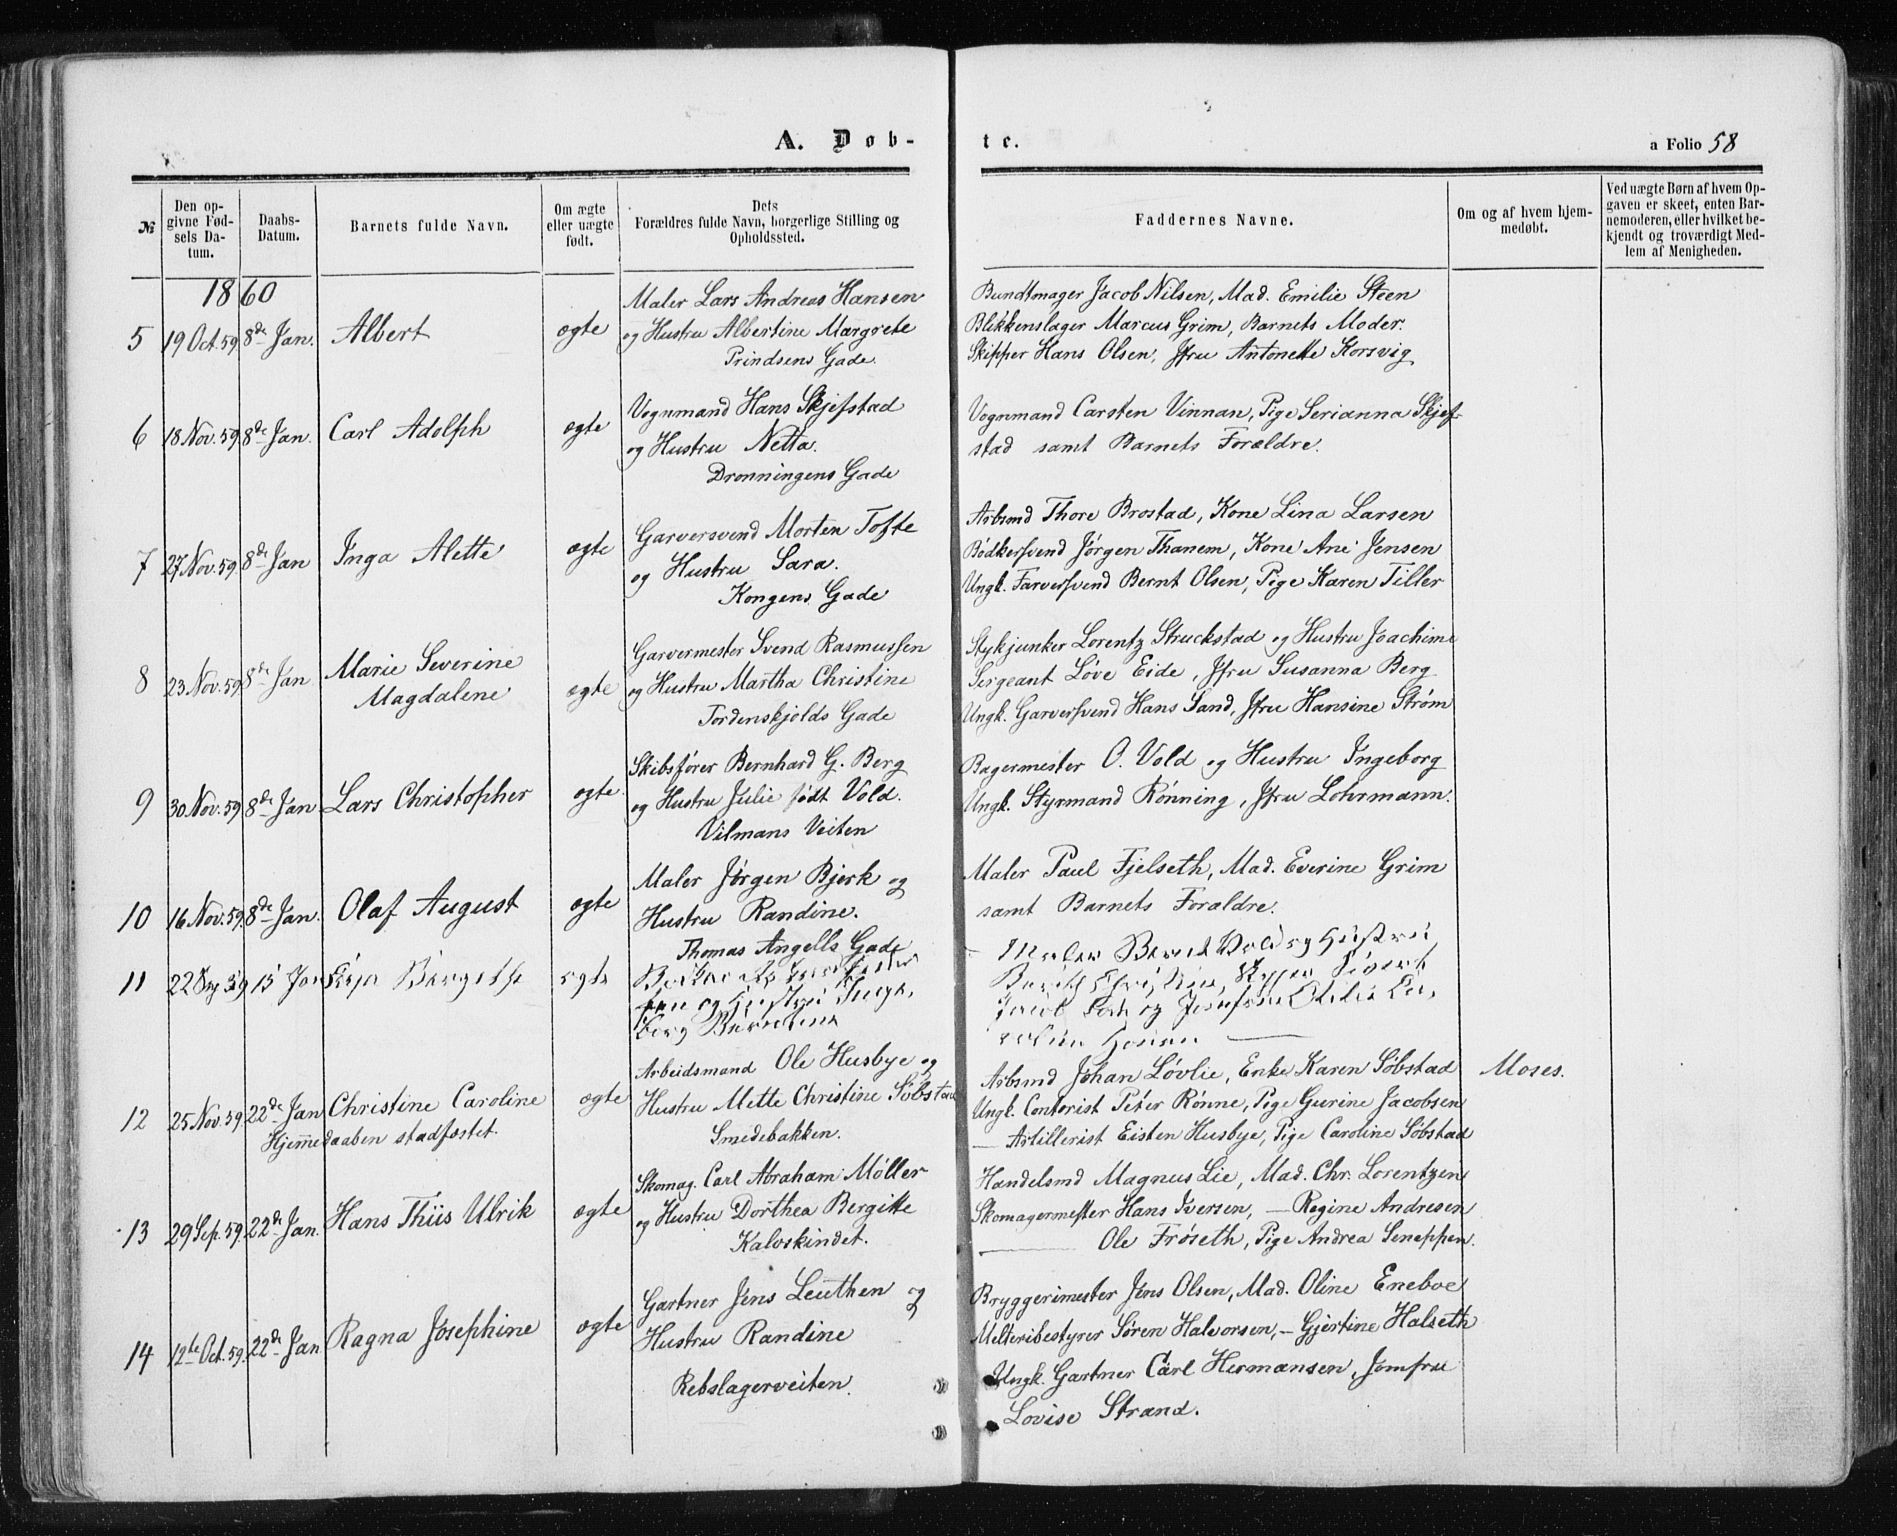 A. Døb-
te.
a Folio 58
№
Den op-
givne Fød-
sels Da-
tum.
Daabs-
Datum.
Barnets fulde Navn.
Om ægte
eller uægte
født.
Dets
Forældres fulde Navn, borgerlige Stilling og
Opholdssted.
Faddernes Navne.
Om og af hvem hjem-
medøbt.
Ved uægte Børn af hvem Op-
gaven er skeet, enten Bar-
nemoderen, eller hvilket be-
kjendt og troværdigt Med-
lem af Menigheden.
1860
5 19 Oct. 59. 8de Jan. Albert ægte
Maler Lars Andreas Hansen
og Hustru Albertine Margrete
Prindsens Gade.
Bundtmager Jacob Nilsen, Mad. Emilie Steen
Blikkenslager Marcus Grim, Barnets Moder.
Skipper Hans Olsen, Jfru Antonette Korsvig
6 18 Nov. 59. 8de Jan. Carl Adolph ægte
Vognmand Hans Skjefstad
og Hustru Netta.
Dronningens Gade
Vognmand Carsten Vinnan, Pige Serianna Skjef-
stad samt Barnets Forældre.
7 27 Nov. 59. 8de Jan Inga Alette ægte
Garversvend Morten Tofte
og Hustru Sara.
Kongens Gade
Arbsmd Thore Brostad, Kone Lina Larsen
Bødkersvend Jørgen Thanem, Kone Ane Jensen
Ungk. Farversvend Bernt Olsen, Pige Karen Tiller
8 23 Nov. 59. 8de Jan Marie Severine
Magdalene ægte
Garvermester Svend Rasmussen
og Hustru Martha Christine
Tordenskjolds Gade
Stykjunker Lorentz Struckstad og Hustru Joachime
Sergeant Løve Eide, Jfru Susanna Berg
Ungk. Garversvend Hans Sand, Jfru Hansine Strøm
9 30 Nov. 59. 8de Jan Lars Christopher ægte.
Skibsfører Bernhard G. Berg
og Hustru Julie født Vold.
Vilmans Veiten
Bagermester O. Vold og Hustru Ingeborg
Ungk. Styrmand Rønning, Jfru Lohrmann.
10 16 Nov. 59. 8de Jan. Olaf August ægte
Maler Jørgen Bjerk og
Hustru Randine.
Thomas Angells Gade
Maler Paul Fjelseth, Mad. Everine Grim
samt Barnets Forældre.
11 22 59 15 Jan ægte
og Hustru Inge-
borg
og Hustru
og
12 25 Nov. 59. 22de Jan Christine Caroline ægte
Hjemmedaaben stadfæstet.
Arbeidsmand Ole Husbye og
Hustru Mette Christine Søbstad
Smedebakken.
Arbsmd Johan Løvlie, Enke Karen Søbstad
Ungk. Contorist Peter Rønne, Pige Gurine Jacobsen
— Artillerist Eisten Husbye, Pige Caroline Søbstad
Moses.
13 29 Sep. 59. 22de Jan. Hans Thiis Ulrik ægte
Skomag. Carl Abraham Møller
og Hustru Dorthea Bergitte
Kalvskindet.
Handelsmd Magnus Lie, Mad. Chr. Lorentzen
Skomagermester Hans Iversen, — Regine Andresen
— Ole Frøseth, Pige Andrea Seneppen.
14 12te Oct. 59. 22de Jan Ragna Josephine ægte
Gartner Jens Leuthen og
Hustru Randine
Rebslagerveiten.
Bryggerimester Jens Olsen, Mad. Oline Eneboe
Melteribestyrer Søren Halvorsen, — Gjertine Halseth
Ungk. Gartner Carl Hermansen, Jomfru
Lovise Strand.